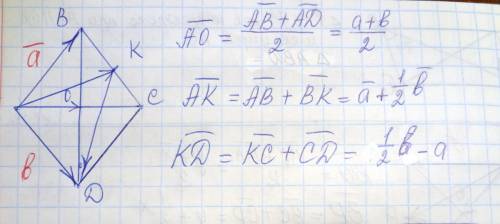 B
K
a̅
O
C
b
D
A̅O̅ = (A̅B̅ + A̅D̅)/2 = (a+b)/2
A̅K̅ = A̅B̅ + B̅K̅ = a̅ + 1/2 b̅
K̅D̅ = K̅C̅ + C̅D̅ = 1/2 b̅ - a